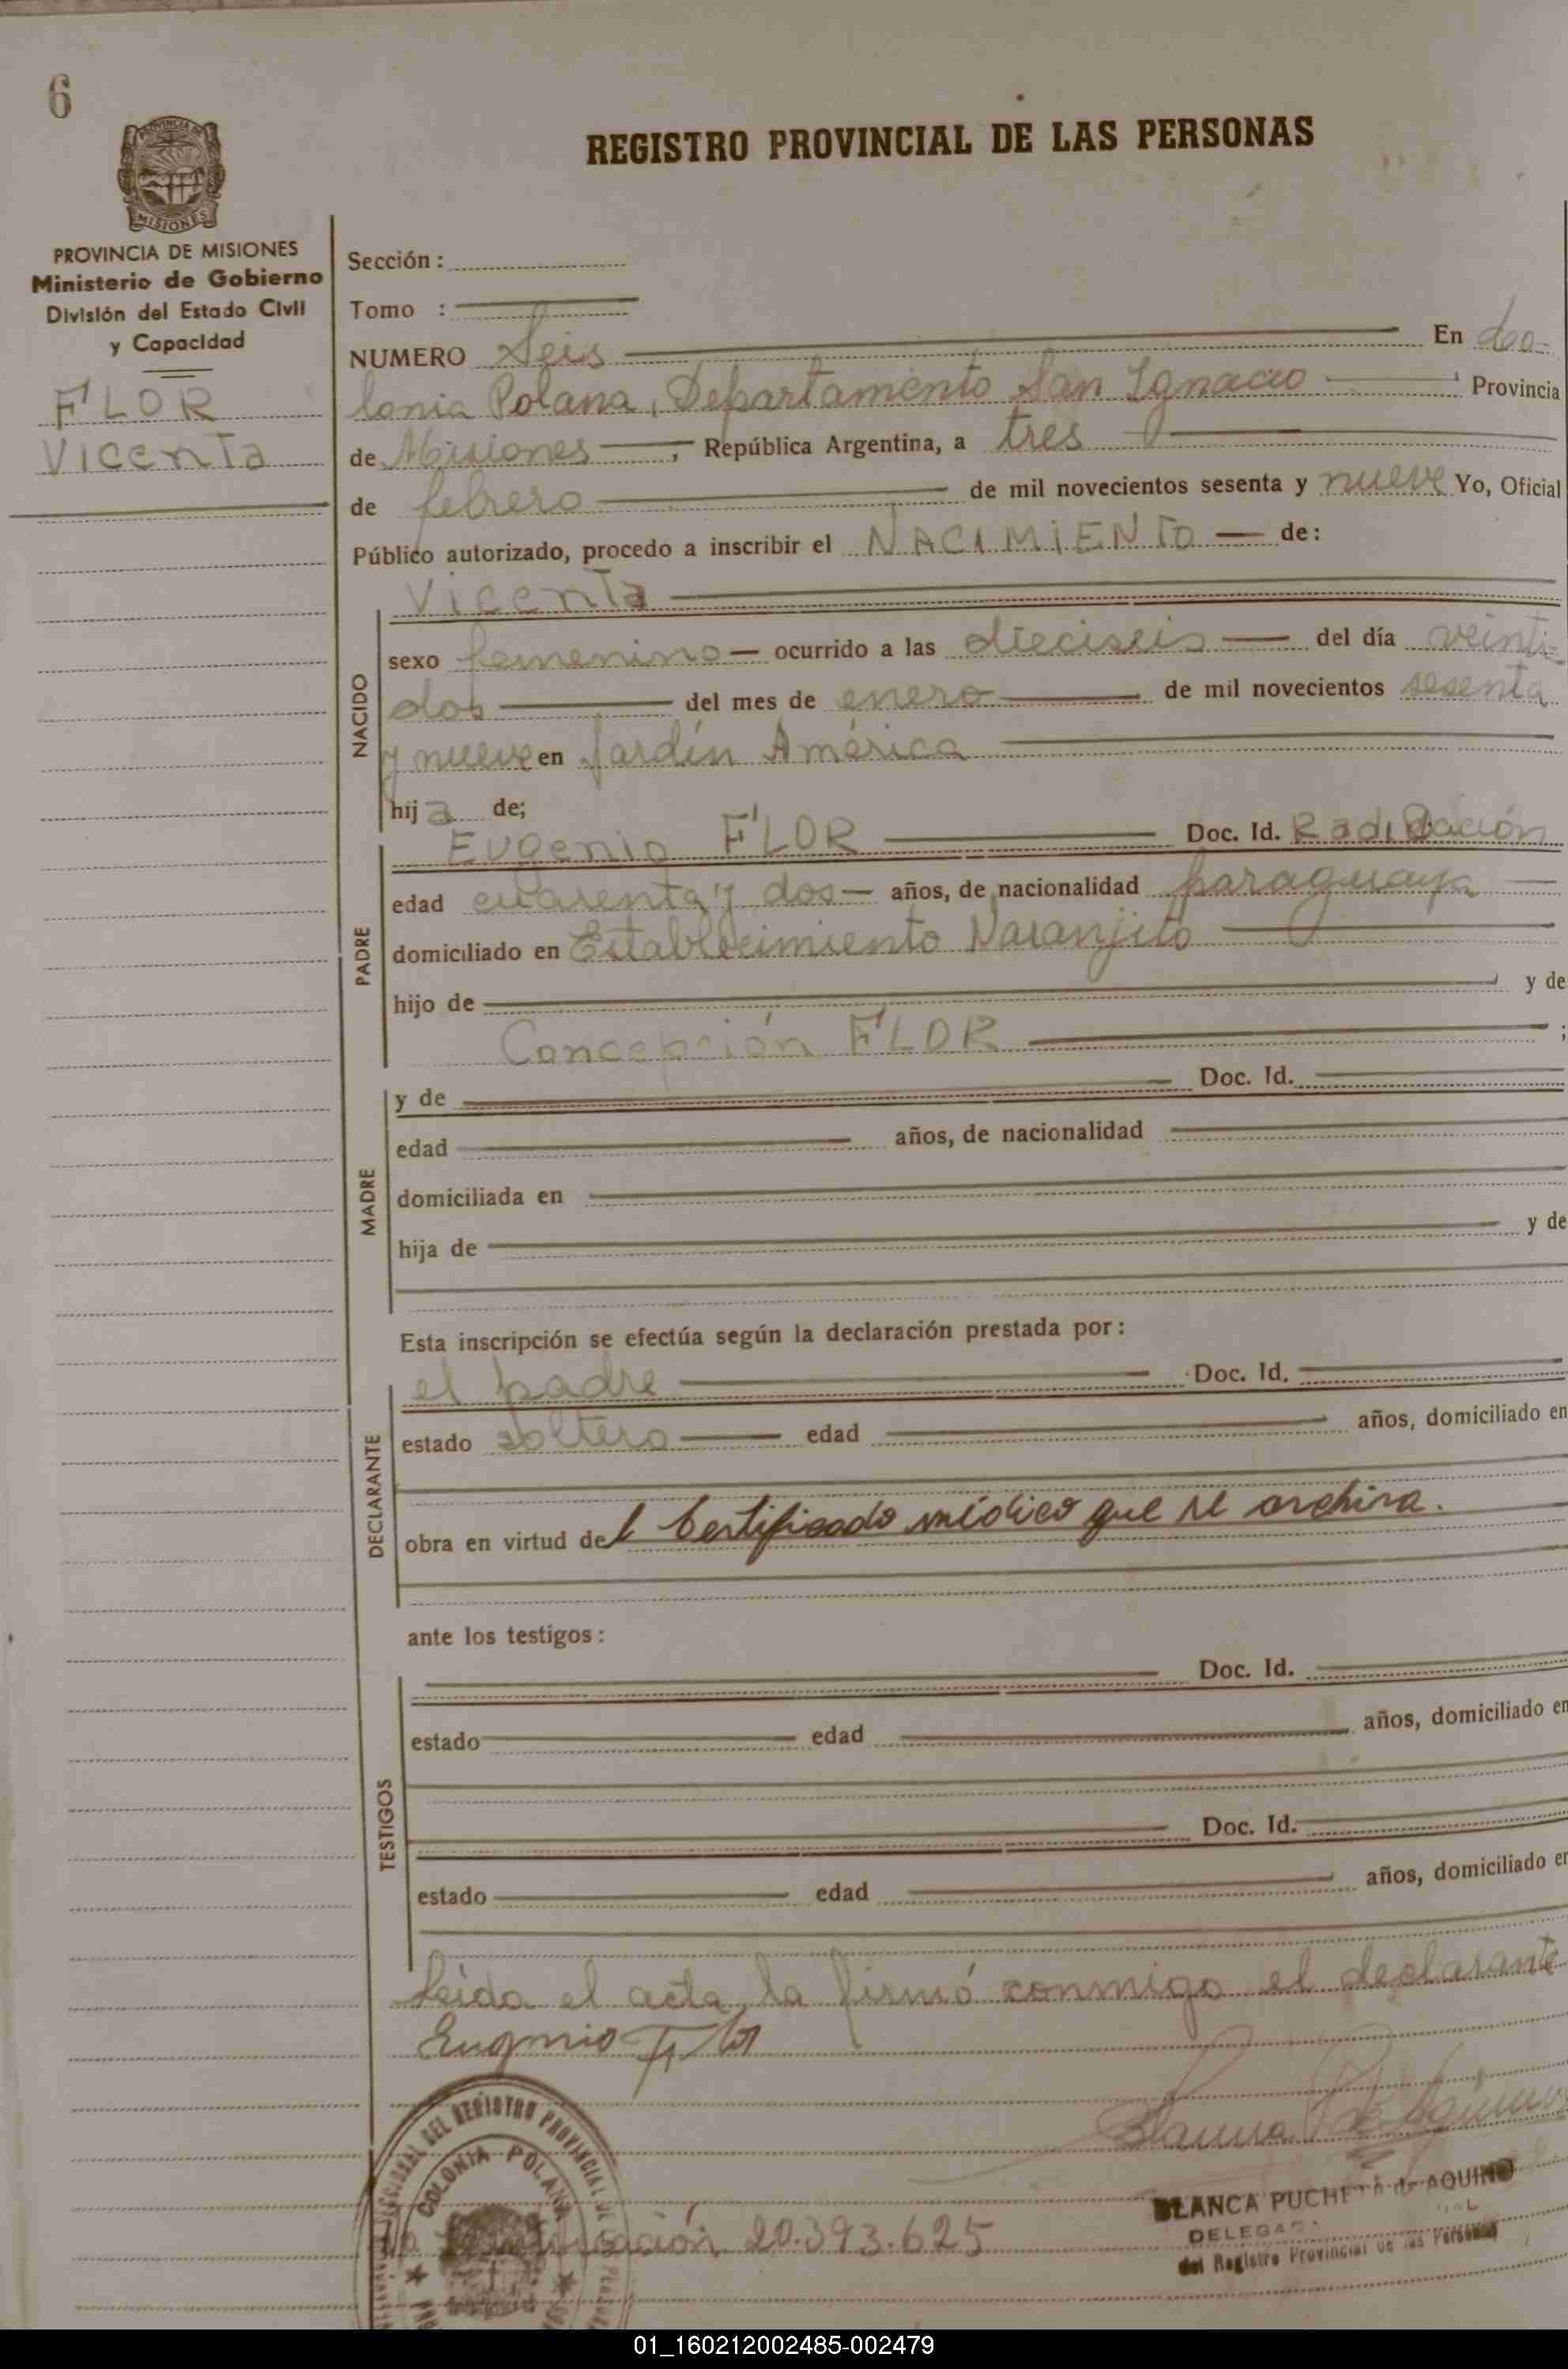 6
REGISTRO PROVINCIAL DE LAS PERSONAS
PROVINCIA DE MISIONES
PROVINCIA DE MISIONES
Ministerio de Gobierno
División del Estado Civil
y Capacidad
FLOR
Vicenta
Sección :
Tomo :
NUMERO Seis En Co-
lonia Polana, Departamento San Ignacio Provincia
de Misiones, República Argentina, a tres
de febrero de mil novecientos sesenta y nueve Yo, Oficial
Público autorizado, procedo a inscribir el NACIMIENTO de:
NACIDO
Vicenta
sexo femenino ocurrido a las dieciseis del día veinti-
dos del mes de enero de mil novecientos sesenta
y nueve en Jardín América
hija de;
PADRE
Eugenio FLOR Doc. Id. Radicación
edad cuarenta y dos años, de nacionalidad paraguaya
domiciliado en Establecimiento Naranjito
hijo de y de
Concepción FLOR ;
MADRE
y de Doc. Id.
edad años, de nacionalidad
domiciliada en
hija de y de
Esta inscripción se efectúa según la declaración prestada por :
DECLARANTE
el padre Doc. Id.
estado soltero edad años, domiciliado en
obra en virtud del Certificado médico que se archiva.
ante los testigos :
TESTIGOS
Doc. Id.
estado edad años, domiciliado en
Doc. Id.
estado edad años, domiciliado en
Leída el acta, la firmó conmigo el declarante
Eugenio Flor
REGISTRO PROVINCIAL DE
COLONIA POLANA
20.393.625
BLANCA PUCHETA de AQUINO
DELEGADA
del Registro Provincial de las Personas
01_160212002485-002479